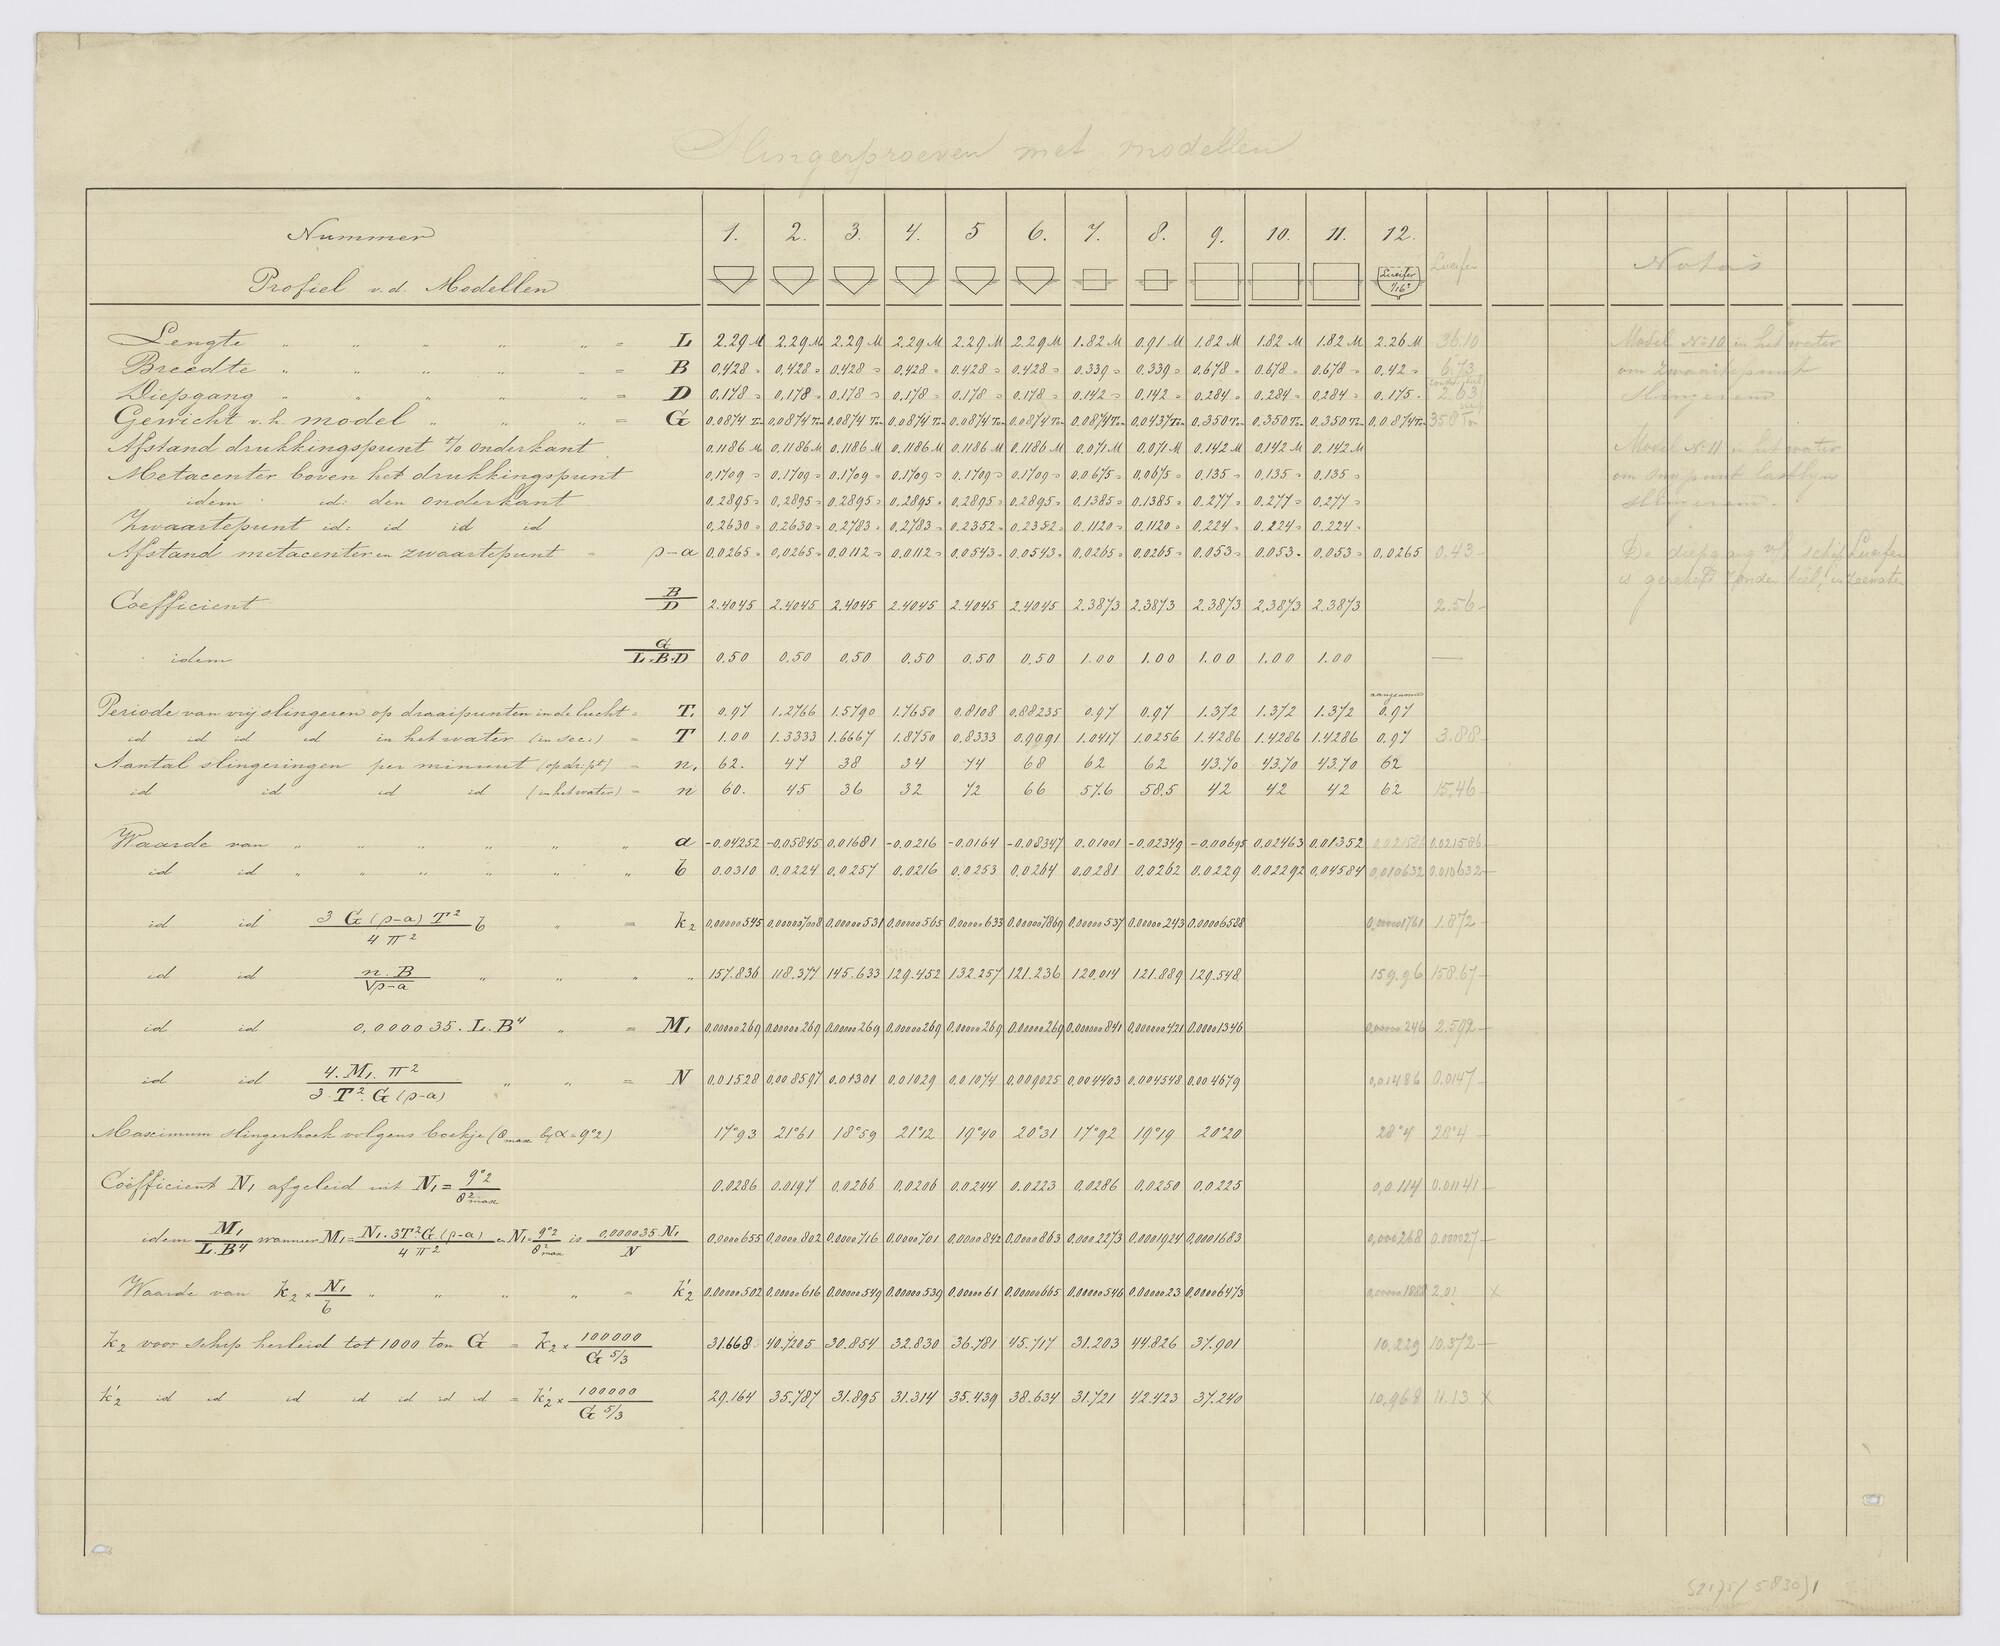 Slingerproeven met modellen
Nummer 1. 2. 3. 4. 5 6. 7. 8. 9. 10. 11. 12.
Profiel v.d. Modellen Lucifer 1/16e Lucifer Nota's
Lengte " " " " " = L 2.29 M 2.29 M 2.29 M 2.29 M 2.29 M 2.29 M 1.82 M 0.91 M 1.82 M 1.82 M 1.82 M 2.26 M 36.10
Breedte " " " " " = B 0,428 " 0,428 " 0,428 " 0,428 " 0,428 " 0,428 " 0,339 " 0,339 " 0,678 " 0,678 " 0,678 " 0,42 " 6.73
Diepgang " " " " " = D 0,178 " 0,178 " 0,178 " 0,178 " 0,178 " 0,178 " 0,142 " 0,142 " 0,284 " 0,284 " 0,284 " 0,175 " 2.63
Gewicht v.h. model " " " = G 0,0874 Ton 0,0874 Ton 0,0874 Ton 0,0874 Ton 0,0874 Ton 0,0874 Ton 0,0874 Ton 0,0437 Ton 0,350 Ton 0,350 Ton 0,350 Ton 0,0874 Ton 358 Ton
Afstand drukkingspunt t/o onderkant 0,1186 M 0,1186 M 0,1186 M 0,1186 M 0,1186 M 0,1186 M 0,071 M 0,071 M 0,142 M 0,142 M 0,142 M
Metacenter boven het drukkingspunt 0,1709 " 0,1709 " 0,1709 " 0,1709 " 0,1709 " 0,1709 " 0,0675 " 0,0675 " 0,135 " 0,135 " 0,135 "
idem id: den onderkant 0,2895 " 0,2895 " 0,2895 " 0,2895 " 0,2895 " 0,2895 " 0,1385 " 0,1385 " 0,277 " 0,277 " 0,277 "
Zwaartepunt id: id id id 0,2630 " 0,2630 " 0,2783 " 0,2783 " 0,2352 " 0,2352 " 0,1120 " 0,1120 " 0,224 " 0,224 " 0,224 "
Afstand metacenter en zwaartepunt = p-a 0,0265 " 0,0265 " 0,0112 " 0,0112 " 0,0543 " 0,0543 " 0,0265 " 0,0265 " 0,053 " 0,053 " 0,053 " 0,0265 0,43
Coefficient B/D 2.4045 2.4045 2.4045 2.4045 2.4045 2.4045 2.3873 2.3873 2.3873 2.3873 2.3873 2.56
idem G/L.B.D 0,50 0,50 0,50 0,50 0,50 0,50 1.00 1.00 1.00 1.00 1.00 —
Periode van vrij slingeren op draaipunten in de lucht = T, 0.97 1.2766 1.5790 1.7650 0.8108 0.88235 0.97 0.97 1.372 1.372 1.372 aangenomen 0.97
id id id id in het water (in sec:) = T 1.00 1.3333 1.6667 1.8750 0.8333 0.9091 1.0417 1.0256 1.4286 1.4286 1.4286 0.97 3.88
Aantal slingeringen per minuut (op dr.pt) = n, 62. 47 38 34 74 68 62 62 43.70 43.70 43.70 62
id id id id (in het water) = n 60. 45 36 32 72 66 57.6 58.5 42 42 42 62 15.46
Waarde van " " " " " a -0.04252 -0,05845 0,01681 -0,0216 -0,0164 -0,08347 0,01001 -0,02349 -0,00695 0,02463 0,01352 0,021586 0,021586
id id " " " " " b 0.0310 0,0224 0,0257 0,0216 0,0253 0,0264 0,0281 0,0262 0,0229 0,02292 0,04584 0,010632 0,010632
id id 3 G (p-a) T²/4 π² b " = k2 0,00000545 0,00000708 0,00000531 0,00000565 0,00000633 0,000007869 0,00000537 0,00000243 0,00006588 0,00001761 1.872
id id n.B/√p-a " " " " 157.836 118.377 145.633 129.452 132.257 121.236 120,014 121.889 129.548 159.96 158.67
id id 0,000035. L.B⁴ " = M, 0,00000269 0,00000269 0,00000269 0,00000269 0,00000269 0,00000269 0,000000841 0,000000421 0,00001346 0,00000246 2.592
id id 4. M,. π²/3 T². G (p-a) " " = N 0,01528 0,008597 0,01301 0,01029 0,01074 0,009025 0,004403 0,004548 0,004679 0,01486 0.0147
Maximum slingerhoek volgens boekje (θ max bij α = 9°2) 17°93 21°61 18°59 21°12 19°40 20°31 17°92 19°19 20°20 28°4 28°4
Coëfficient N, afgeleid uit N, = 9°2/θ²max 0.0286 0.0197 0,0266 0,0206 0,0244 0,0223 0,0286 0,0250 0,0225 0,0114 0.01141
idem M,/L.B⁴ wanneer M, = N,.3T²G (p-a)/4 π² en N, = 9°2/θ²max is 0,000035.N,/N 0,0000655 0,0000802 0,0000716 0,0000701 0,0000842 0,0000863 0,0002273 0,0001924 0,0001683 0,000268 0.000027
Waarde van k2 × N,/b " " " " = k'2 0,00000502 0,00000616 0,00000549 0,00000539 0,0000061 0,00000665 0,00000546 0,0000023 0,00006473 0,00001888 2.01 X
k2 voor schip herleid tot 1000 ton G = k2 × 100000/G 5/3 31.668 40.7205 30.854 32.830 36.781 45.717 31.203 44.826 37.901 10.229 10.372
k'2 id id id id id id id = k'2 × 100000/G 5/3 29.164 35.787 31.895 31.314 35.439 38.634 31.721 42.423 37.240 10,968 11.13 X
Model No 10 in het water
om zwaartepunt
slingerend
Model No 11 in het water
om
slingerend.
De diepgang v/h schip Lucifer
is gerekend zonder kiel,